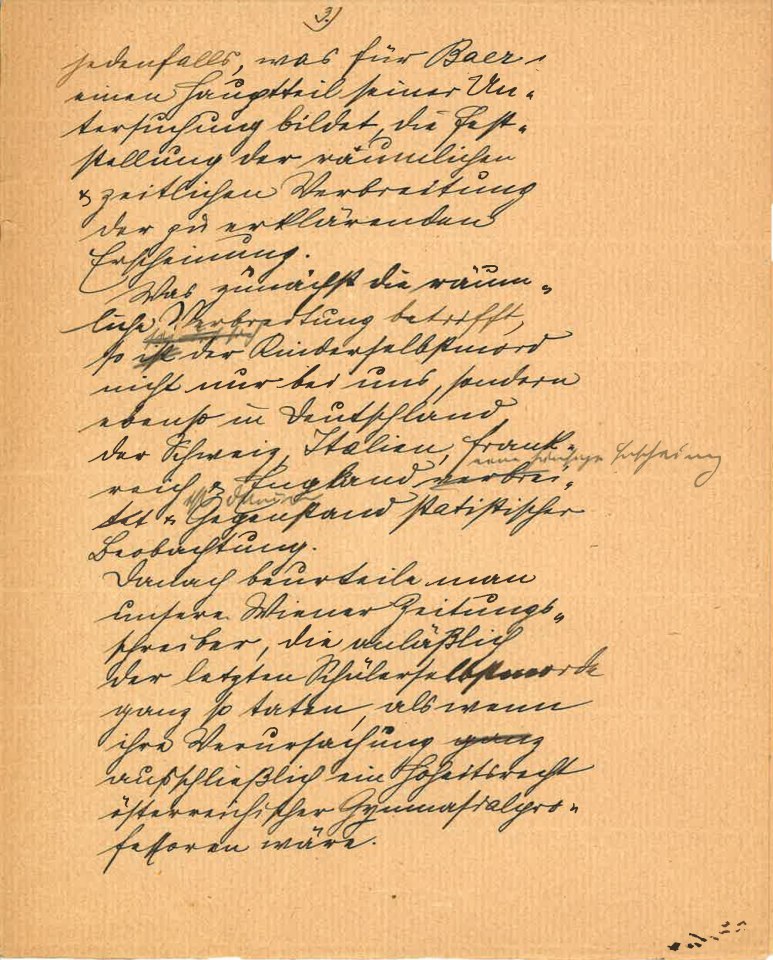 3.)
jedenfalls, was für Baer
einen Hauptteil seiner Un-
tersuchung bildet, die Fest-
stellung der räumlichen
& zeitlichen Verbreitung
der zu erklärenden
Erscheinung.
Was zunächst die räum-
liche Verbreitung betrifft,
so ist der Kinderselbstmord
nicht nur bei uns, sondern
ebenso in Deutschland,
der Schweiz, Italien, Frank-
eine häufige Erscheinung
reich & England verbrei-
ist
tet & Gegenstand statistischer
Beobachtung.
Danach beurteile man
unsere Wiener Zeitungs-
schreiber, die anläßlich
der letzten Schülerselbstmorde
ganz so taten, als wenn
ihre Verursachung ganz
ausschließlich ein Hoheitsrecht
österreichischer Gymnasialpro-
fessoren wäre.